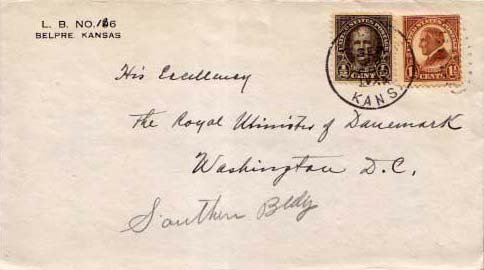 L. B. NO. 126
BELPRE, KANSAS
UNITED STATES POSTAGE
½ CENT ½
1½ CENT. 1½
KANS.
His Excellency
The Royal Minister of Danemark
Washington D.C.
Southern Bldg